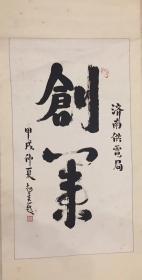 濟南供電局
創業
甲戌仲夏